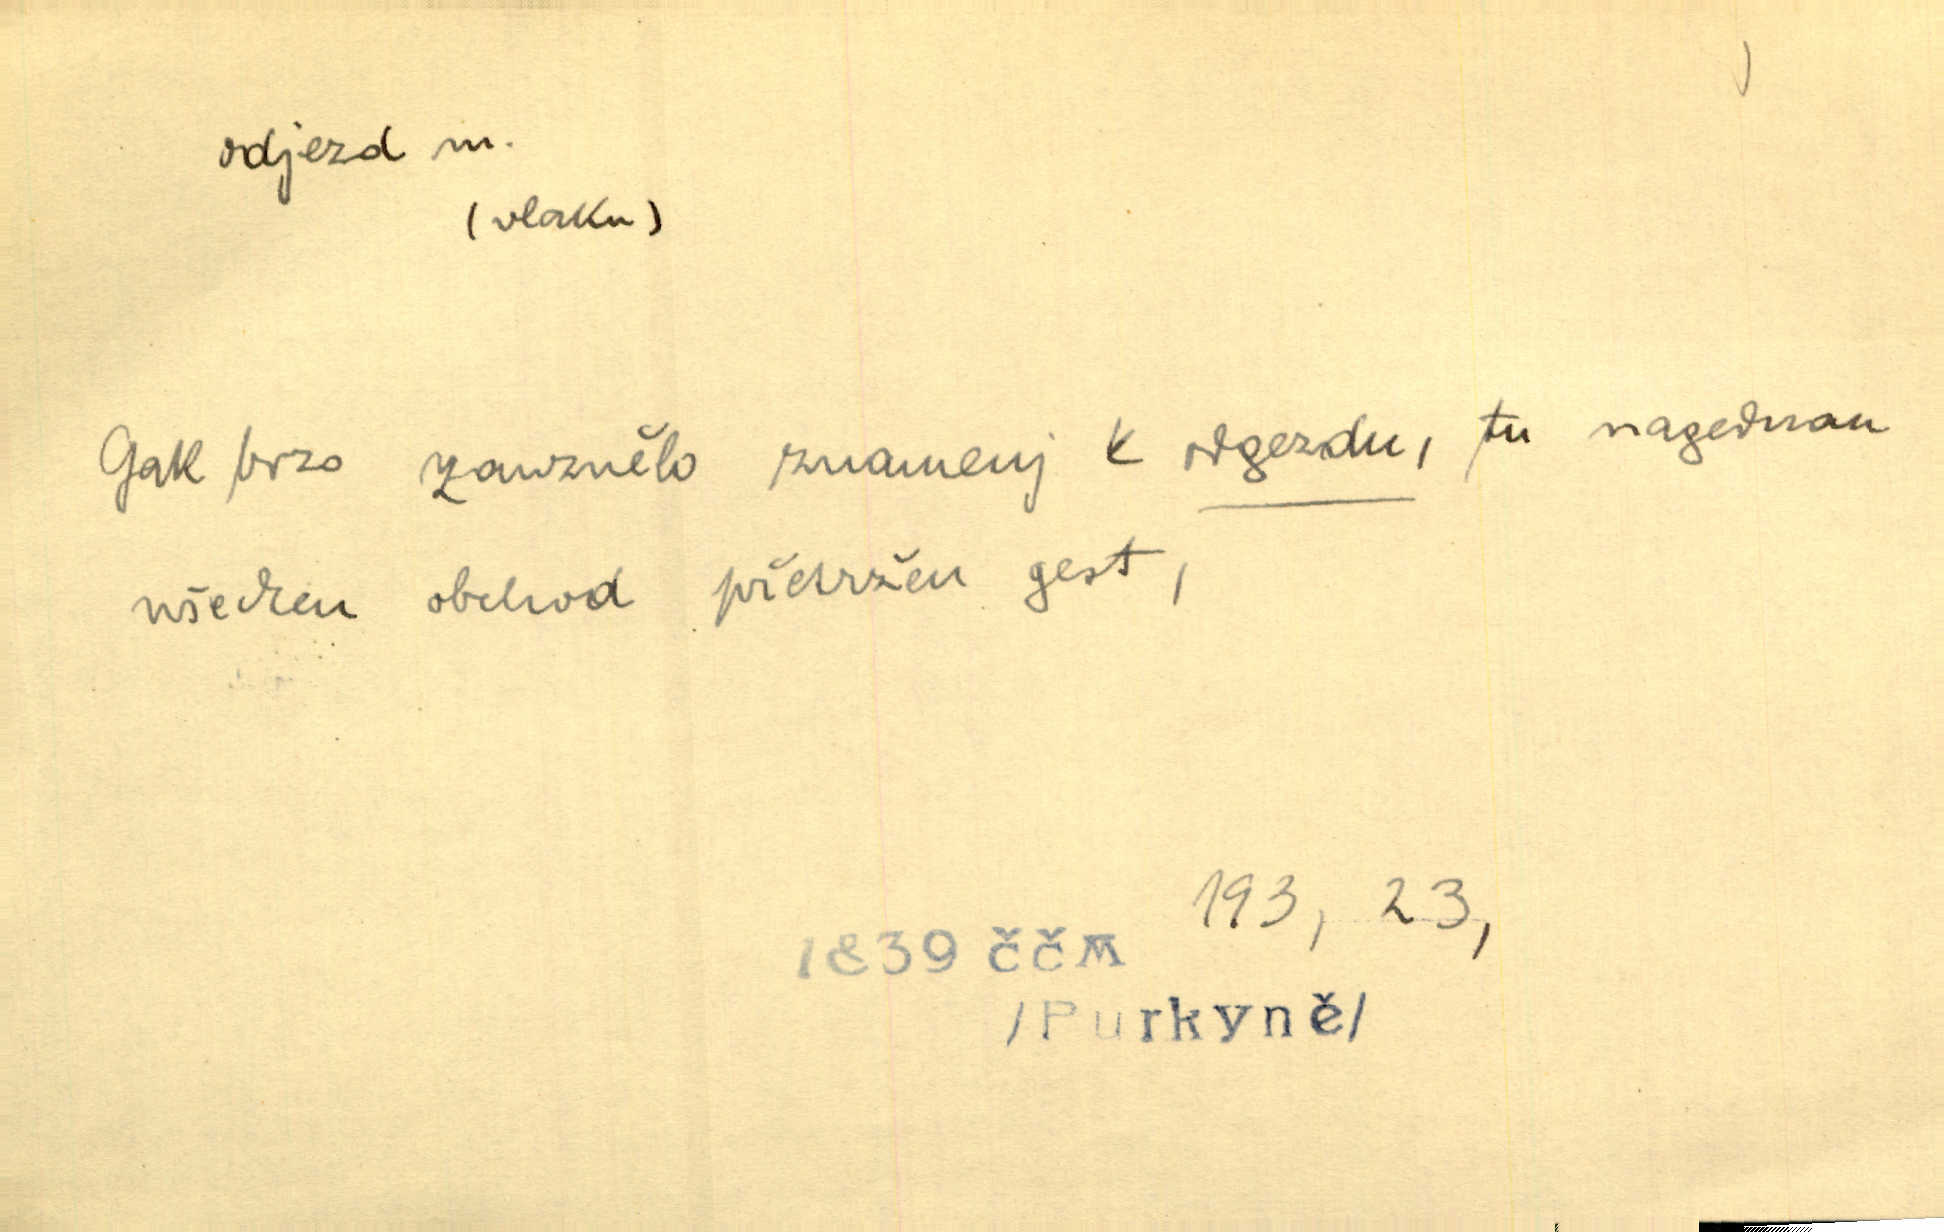 odjezd m.
(vlaku)
Gak brzo zawznělo znamenj k odgezdu, tu nagednau
wšechen obchod přetržen gest,
193, 23,
1839 ččm
/Purkyně/